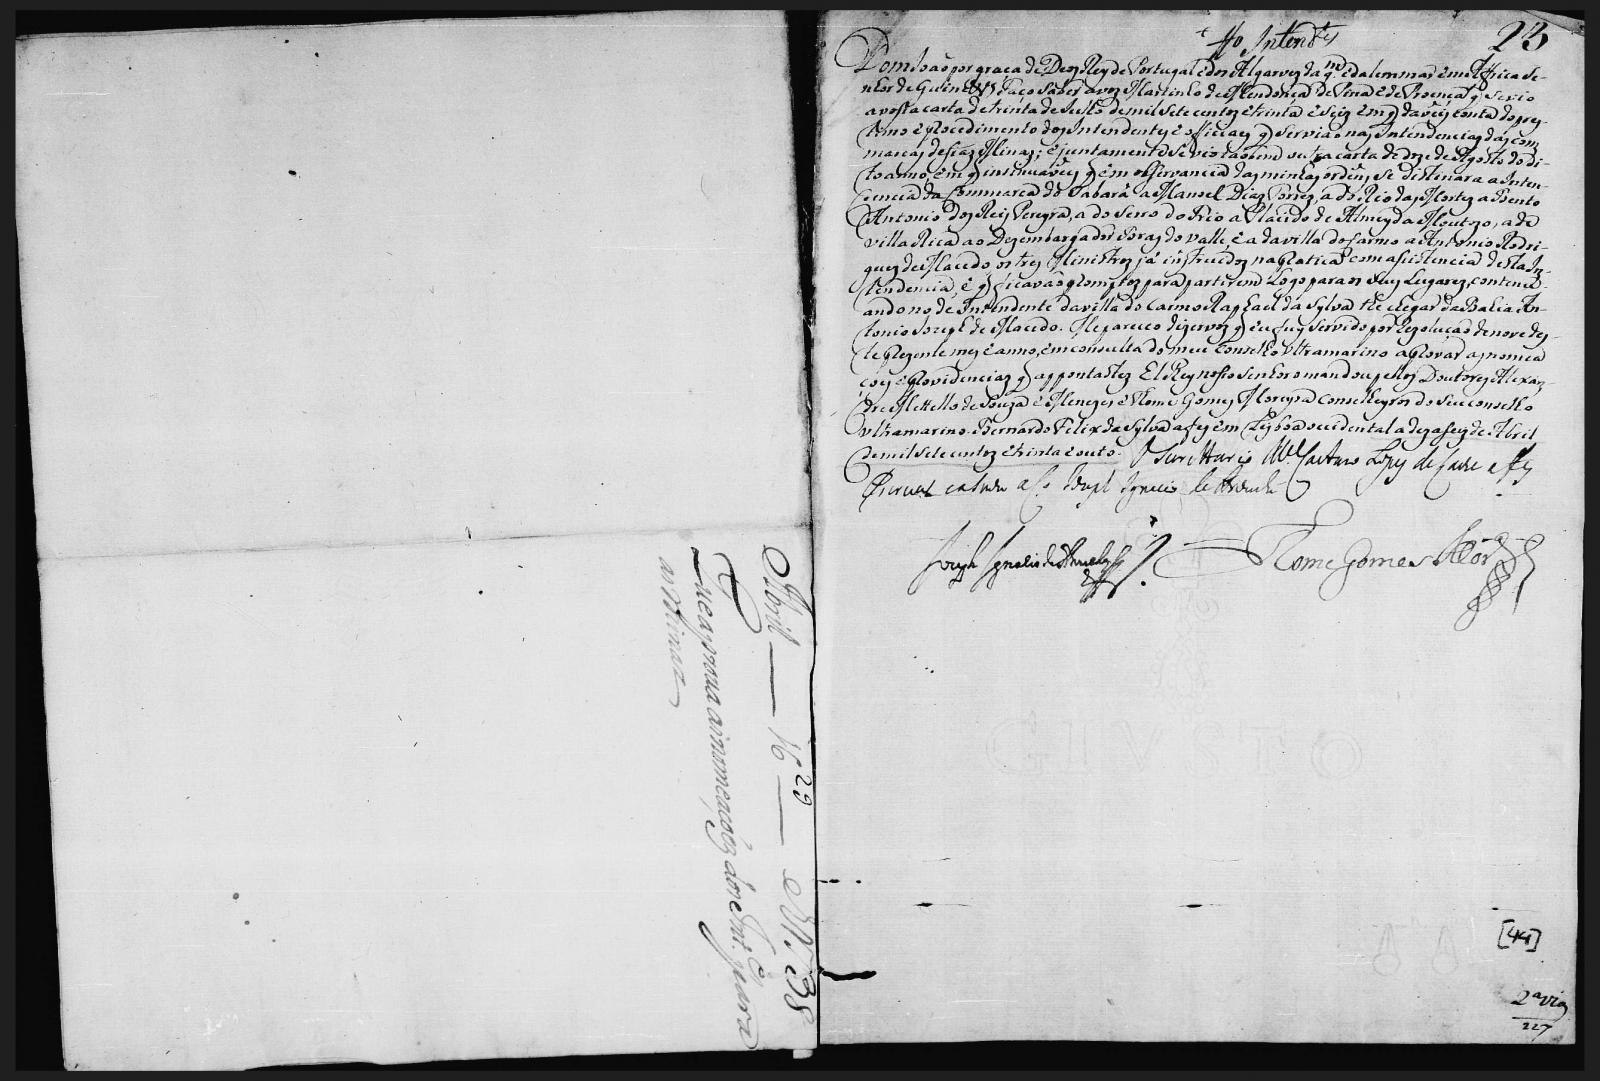 Intend.tes
23
Dom João por graça de Deos Rey de Portugal e dos Algarves daq.m e dalem mar em Affrica Se-
nhor de Guine &.ª Faço saber avos Martinho de Mendonça de Pina e de Proença q̃ se vio
a vossa carta de trinta de Julho de mil sete centos e trinta e seis em q̃ daveis conta do pres-
timo e procedimento dos Intendentes e officiaes q̃ servião nas Intendencias das com
marcas dessas Minas; e juntamente se vio tambem outra carta de doze de Agosto do di-
to anno, em q̃ insinuaveis q̃ em observancia das minhas ordens, se destinara a Inten-
dencia da Commarca do Sabará a Manoel Dias Torres, a do Rio das Mortes a Bento
Antonio dos Reis Pereyra, a do Serro do Frio a Placido de Almeyda Moutozo, a de
Villa Rica ao Dezembargador Bras do Valle, e a da villa do Carmo a Antonio Rodri-
gues de Macedo os tres Ministros já instruidos na pratica com asistencia desta In-
tendencia, e q̃ ficavão promptos para partirem logo para os seus Lugares, continu-
ando no de Intendente da villa do Carmo Raphael da Sylva the chegar da Bahia An-
tonio Joseph de Macedo. Me pareceo dizervos q̃ eu fuy servido por rezolução de nove des-
te prezente mes e anno, em consulta do meu Conselho Ultramarino aprovar as nomea
çoes e providencias q̃ appontastes. El Rey nosso Senhor o mandou pellos Doutores Alexan-
dre Metello de Souza e Menezes e Thome Gomes Moreyra Conselheyros do seu conselho
Ultramarino. Bernardo Felix da Sylva a fes em Lisboa occidental a dezaseis de Abril
de mil sete centos e trinta e outo. O Secretario M.el Caetano Lopes de Lavre a fes
escrever
Thome Gomes Mor.ra
Abril — 16 — de 1738
29
[44]
2.ª via
227